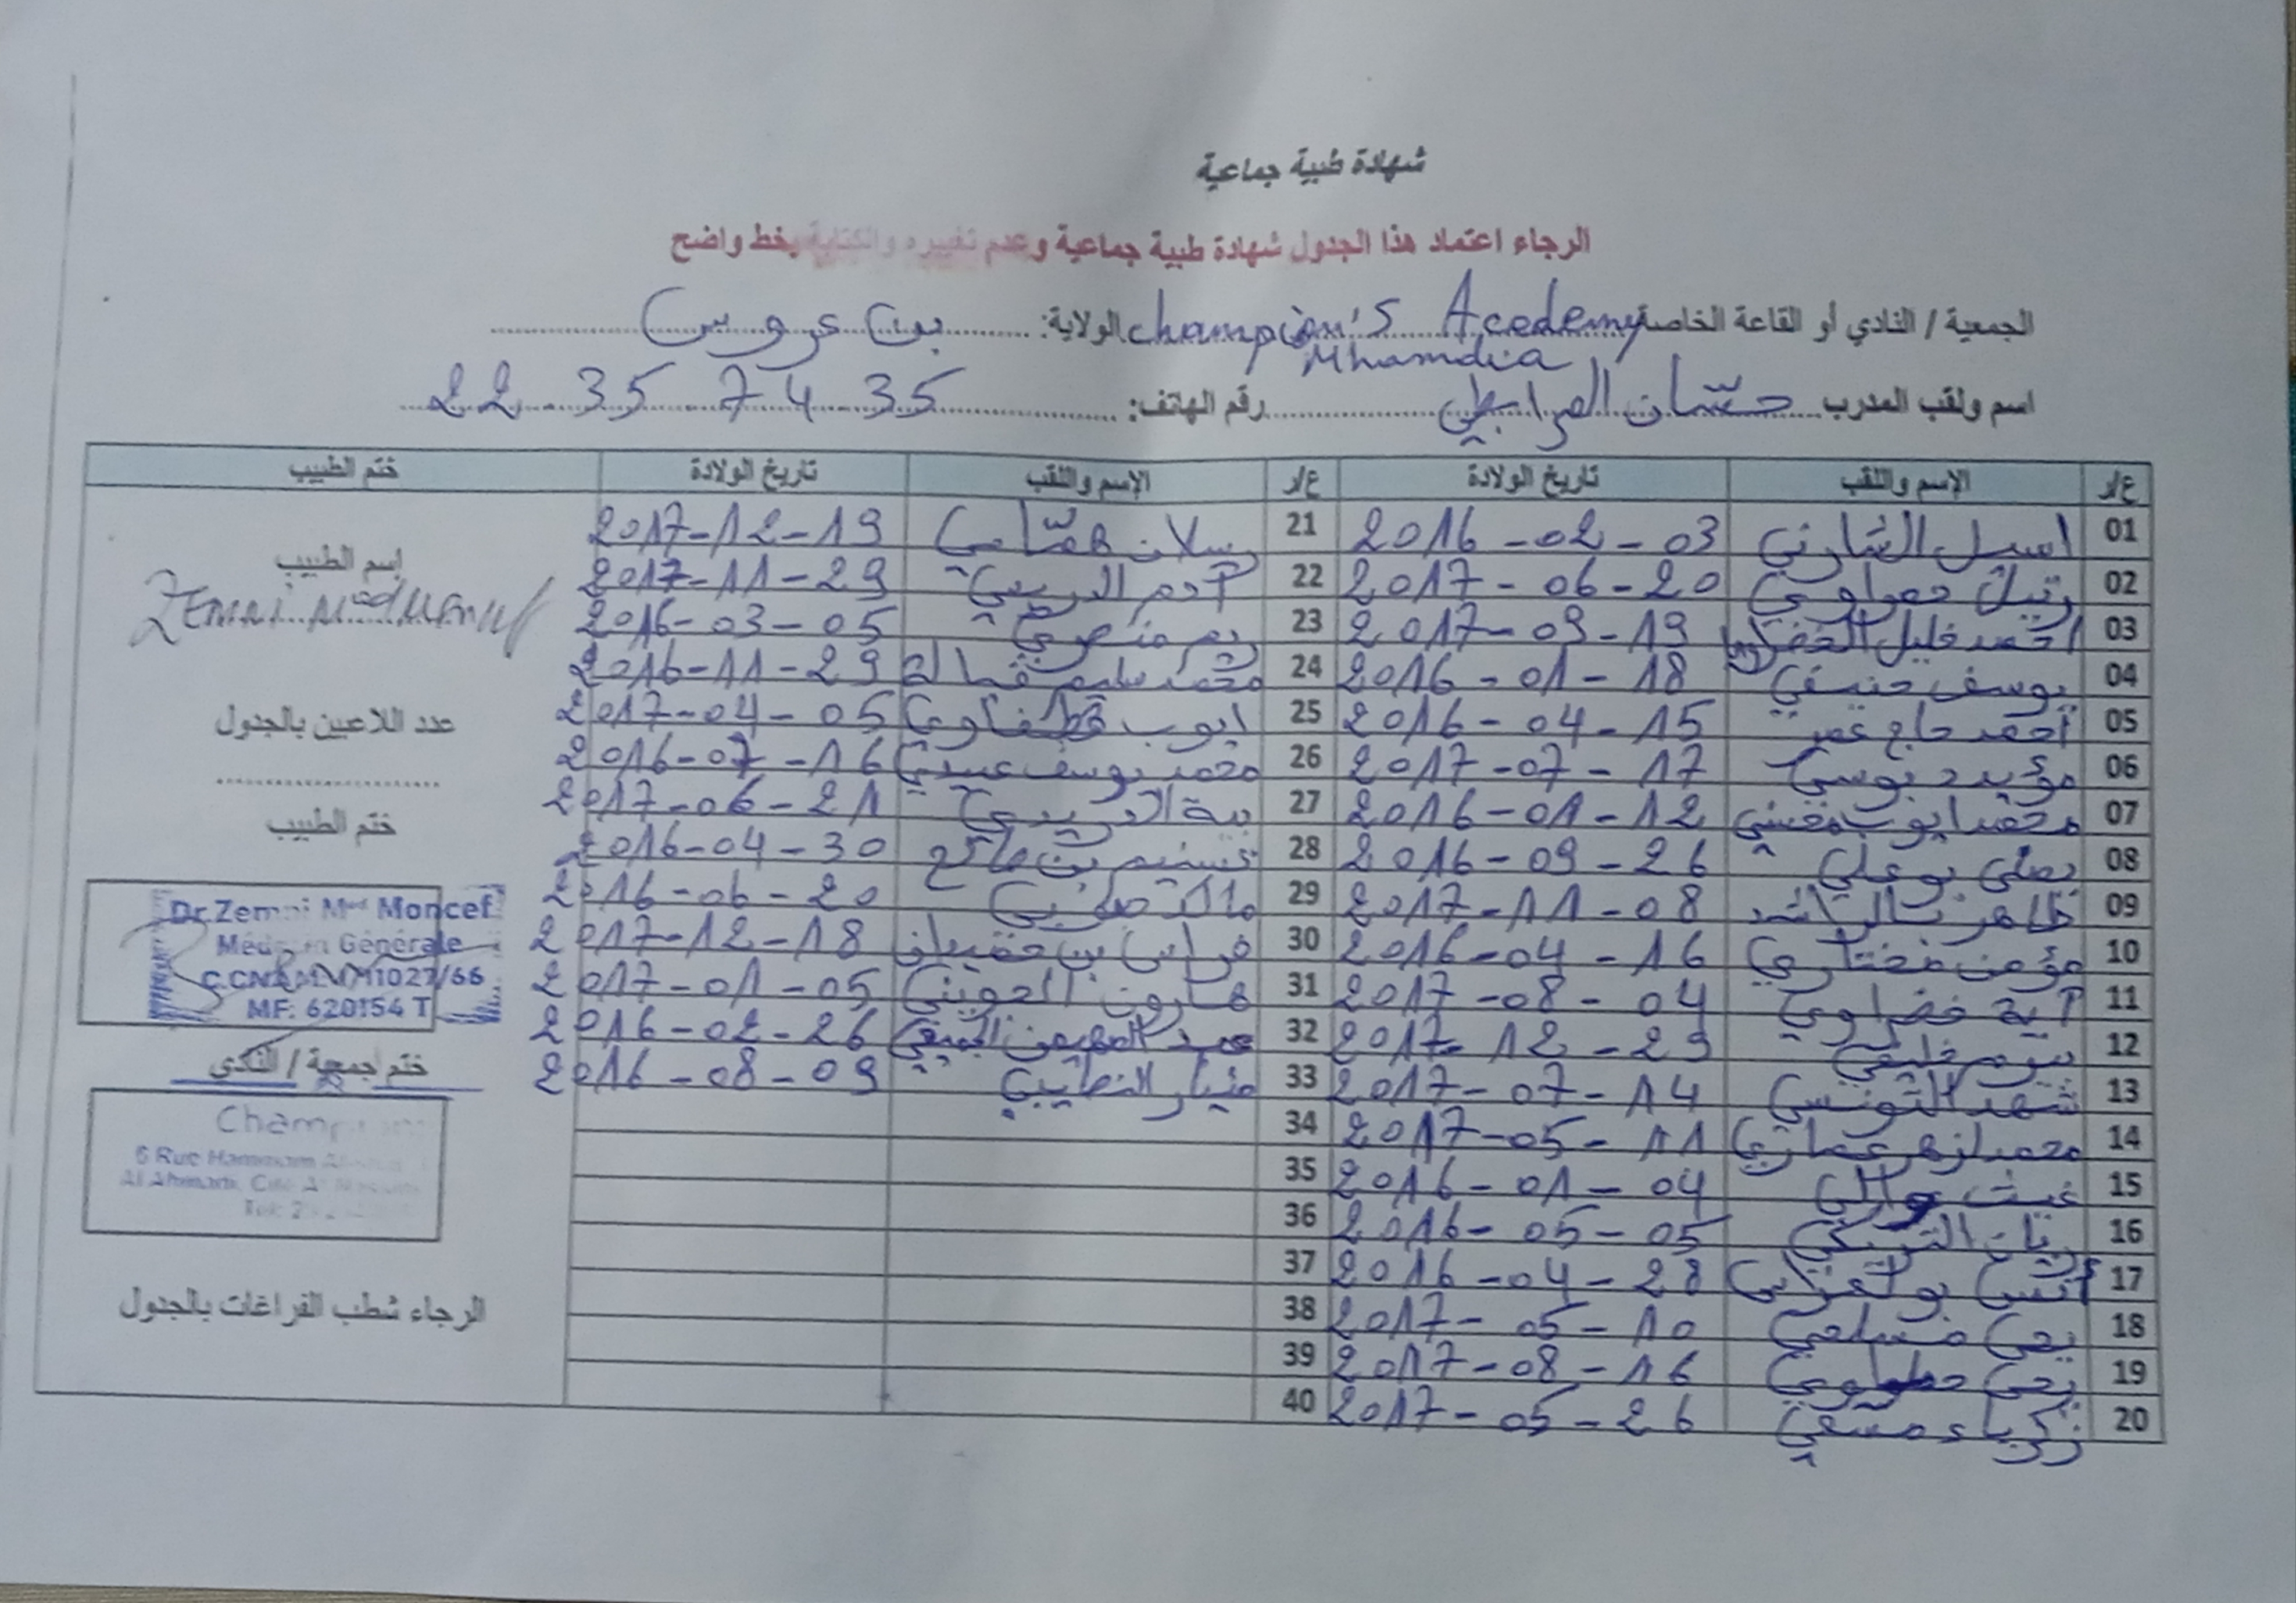 شهادة طبية جماعية
الرجاء اعتماد هذا الجدول شهادة طبية جماعية وعدم تغييره والكتابة بخط واضح
الجمعية / النادي أو القاعة الخاصة Champion's Academy Mhamdia الولاية: بن عروس
اسم ولقب المدرب حسّان المرابطي رقم الهاتف: 22 35 74 35
ع/ر الإسم واللقب تاريخ الولادة ع/ر الإسم واللقب تاريخ الولادة ختم الطبيب
01 اسيل الشارني 2016-02-03 21 رسلان همّامي 2017-12-19
02 رتيل حمراوي 2017-06-20 22 آدم الدريدي 2017-11-29
03 احمد خليل 2017-09-19 23 ريم منصوري 2016-03-05
04 يوسف حنيفي 2016-01-18 24 محمد سليم 2016-11-29
05 أحمد حاج عمر 2016-04-15 25 ايوب 2017-04-05
06 مؤيد بوسي 2017-07-17 26 محمد يوسف عبيدي 2016-07-16
07 محمد ايوب 2016-01-12 27 بية الدريدي 2017-06-21
08 بوعلي 2016-09-26 28 تسنيم بن صالح 2016-04-30
09 2017-11-08 29 2016-06-20
10 مؤمن مختاري 2016-04-16 30 فراس بن 2017-12-18
11 آية خضراوي 2017-08-04 31 هارون الجويني 2017-01-05
12 خليفي 2017-12-29 32 عبد المهيمن 2016-02-26
13 شهد التونسي 2017-07-14 33 2016-08-09
14 محمد ازهر عماري 2017-05-11 34
15 غيث 2016-01-04 35
16 ريان التريكي 2016-05-05 36
17 أنس بو 2016-04-28 37
18 يحي مسلمي 2017-05-10 38
19 يحي 2017-08-16 39
20 زكرياء 2017-05-26 40
إسم الطبيب
Zemni Med Moncef
عدد اللاعبين بالجدول
ختم الطبيب
Dr Zemni Med Moncef
Médecin Générale
MF: 620154 T
ختم جمعية / النادي
6 Rue Hammam
الرجاء شطب الفراغات بالجدول